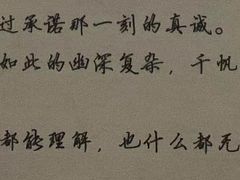 过承诺那一刻的真诚。
如此的幽深复杂，千帆
都能理解，也什么都无